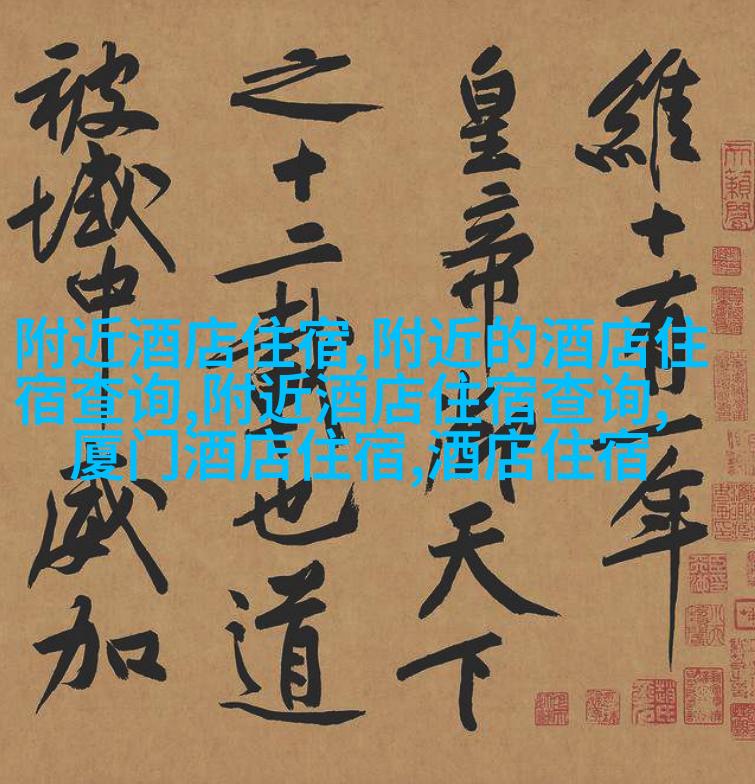 維十有一年
皇帝御天下
之十二載也道
被域中威加
附近酒店住宿,附近的酒店住
宿查询,附近酒店住宿查询,
厦门酒店住宿,酒店住宿
天籟閣